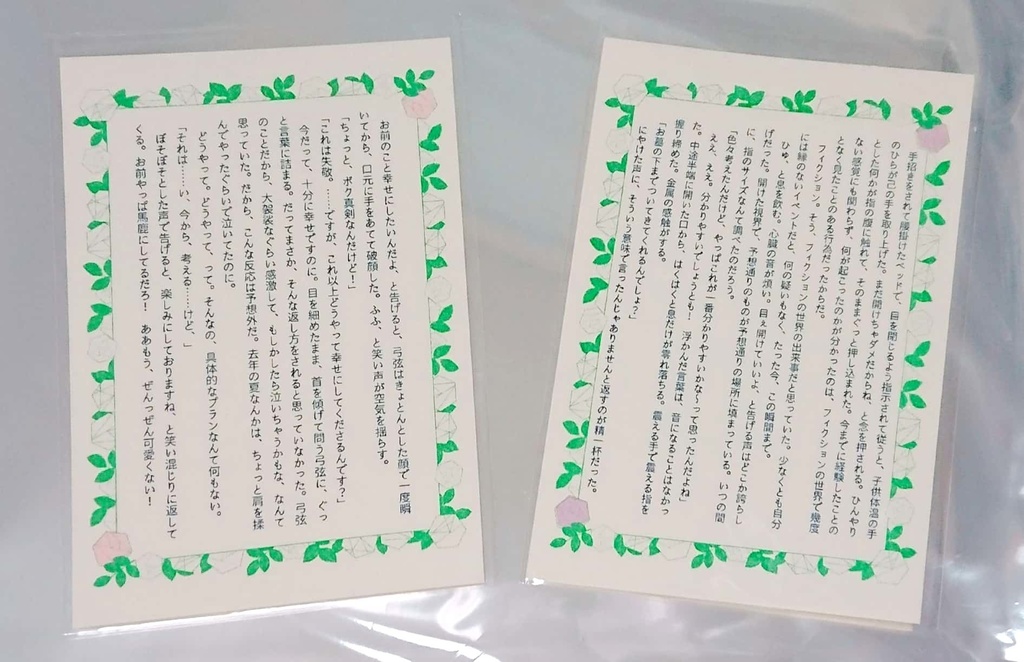 お前のこと幸せにしたいんだよ、と告げると、弓弦はきょとんとした顔で一度瞬
いてから、口元に手をあてて破顔した。ふふ、と笑い声が空気を揺らす。
「ちょっと、ボク真剣なんだけど！」
「これは失敬。……ですが、これ以上どうやって幸せにしてくださるんです？」
今だって、十分に幸せですのに。目を細めたまま、首を傾げて問う弓弦に、ぐっ
と言葉に詰まる。だってまさか、そんな返し方をされると思っていなかった。弓弦
のことだから、大袈裟なぐらい感激して、もしかしたら泣いちゃうかもな、なんて
思っていた。だから、こんな反応は予想外だ。去年の夏なんかは、ちょっと肩を揉
んでやったぐらいで泣いてたのに。
どうやって。どうやって、って。そんなの、具体的なプランなんて何もない。
「それは……い、今から、考える……けど。」
ぼそぼそとした声で告げると、楽しみにしておりますね、と笑い混じりに返して
くる。お前やっぱ馬鹿にしてるだろ！　ああもう、ぜんっぜん可愛くない！
手招きをされて腰掛けたベッドで、目を閉じるよう指示されて従うと、子供体温の手
のひらが己の手を取り上げた。まだ開けちゃダメだからね、と念を押される。ひんやり
とした何かが指の腹に触れて、そのままぐっと押し込まれた。今までに経験したことの
ない感覚にも関わらず、何が起こったのかが分かったのは、フィクションの世界で幾度
となく見たことのある行為だったからだ。
フィクション。そう、フィクションの世界の出来事だと思っていた。少なくとも自分
には縁のないイベントだと、何の疑いもなく、たった今、この瞬間まで。
ひゅ、と息を飲む。心臓の音が煩い。目ぇ開けていいよ、と告げる声はどこか誇らし
げだった。開けた視界で、予想通りのものが予想通りの場所に填まっている。いつの間
に、指のサイズなんて調べたのだろう。
「色々考えたんだけど、やっぱこれが一番分かりやすいかな～って思ったんだよね」
ええ、ええ。分かりやすいでしょうとも！　浮かんだ言葉は、音になることはなかっ
た。中途半端に開いた口から、はくはくと息だけが零れ落ちる。震える手で震える指を
握り締めた。金属の感触がする。
「お墓の下までついてきてくれるんでしょ？」
にやけた声に、そういう意味で言ったんじゃありませんと返すのが精一杯だった。